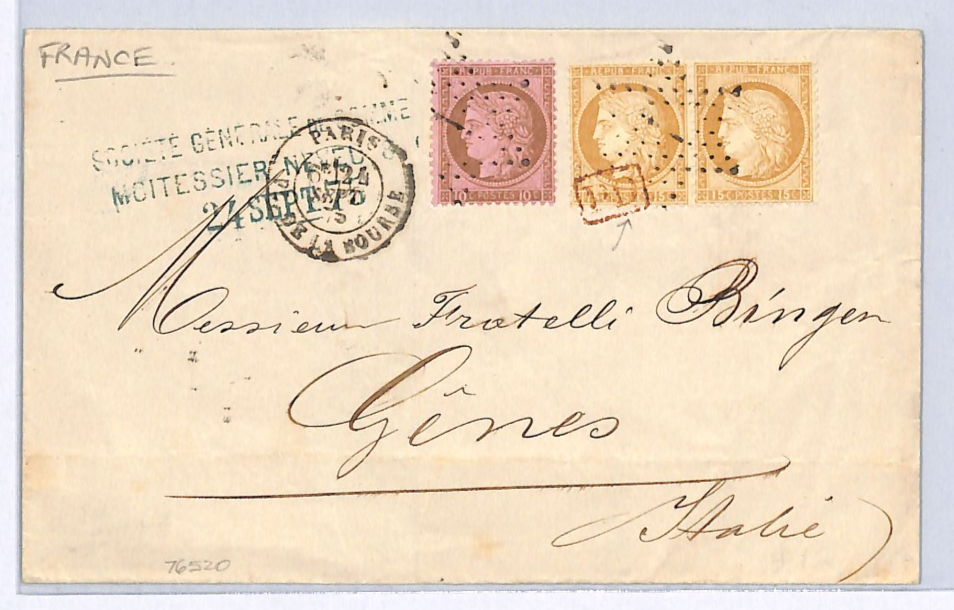 FRANCE
SOCIÉTÉ GÉNÉRALE
MOITESSIER NEVEU
24 SEPT. 75
PARIS
24
SEPT
75
PL. DE LA BOURSE
REPUB FRANC
10C POSTES 10C
REPUB FRANC
15C
REPUB FRANC
15C POSTES 15C
Messieurs Fratelli Bingen
Gênes
Italie
76520